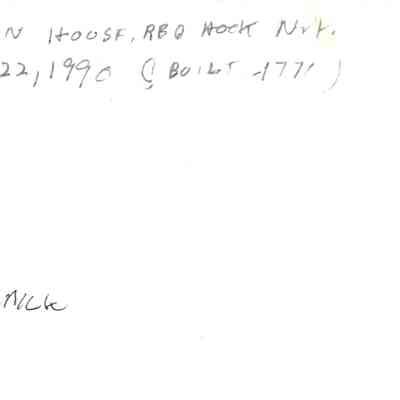 N HOUSE, RBQ HOCK
22, 1990 (! BUILT 1771)